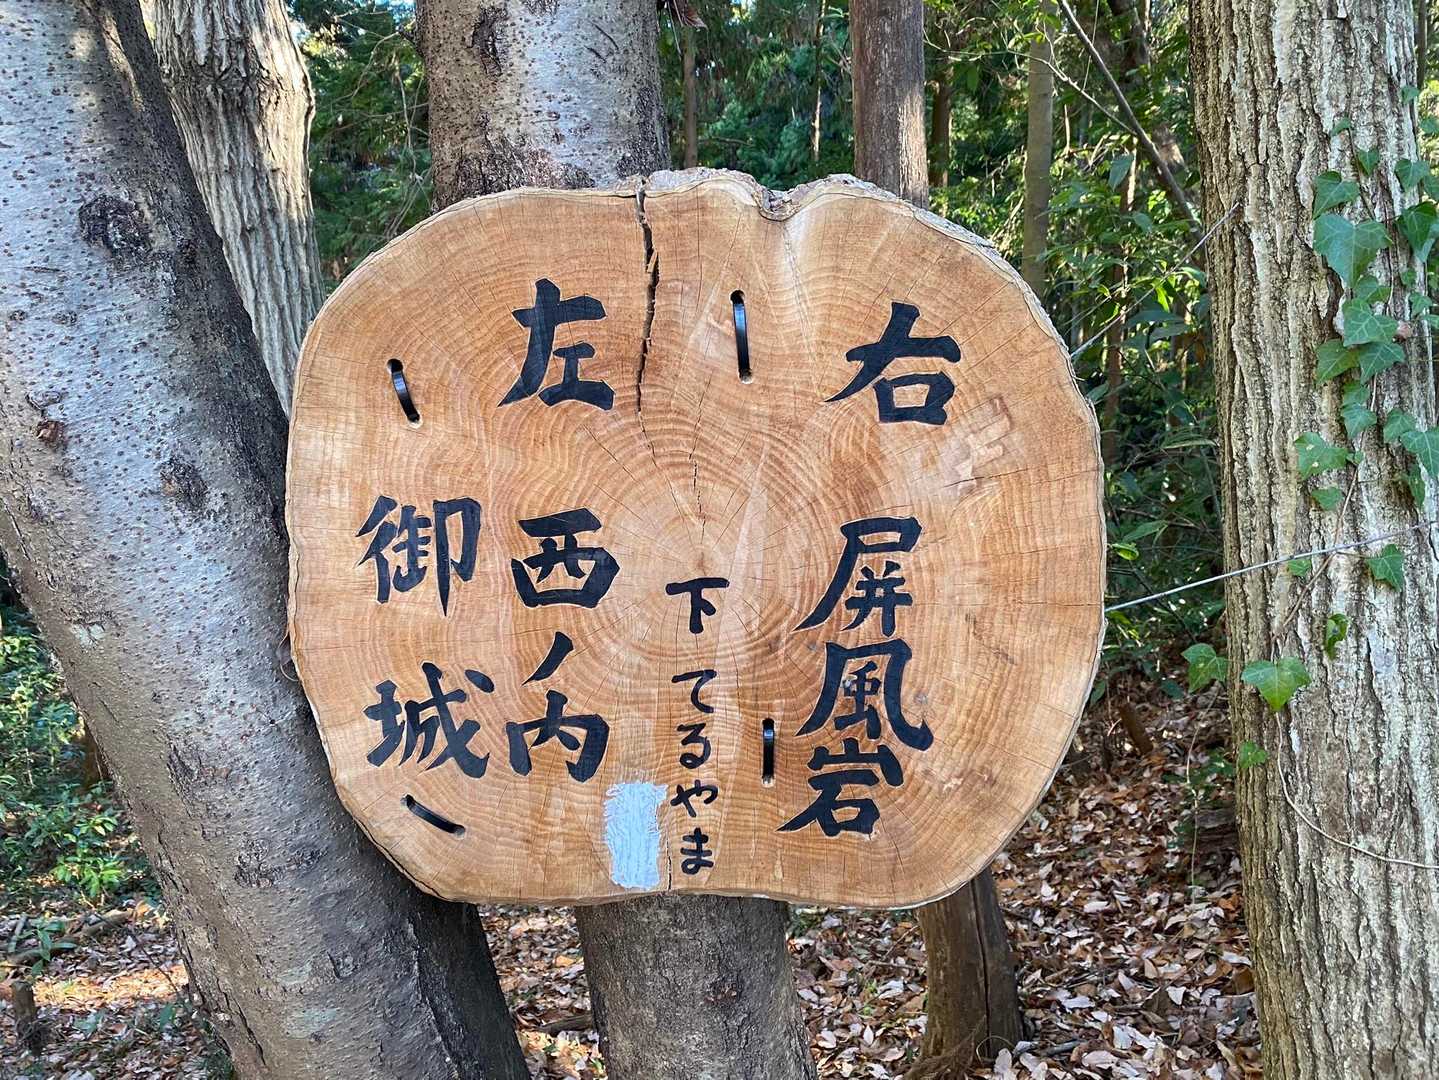 右 屏風岩
下 てるやま
左 西ノ内
御城